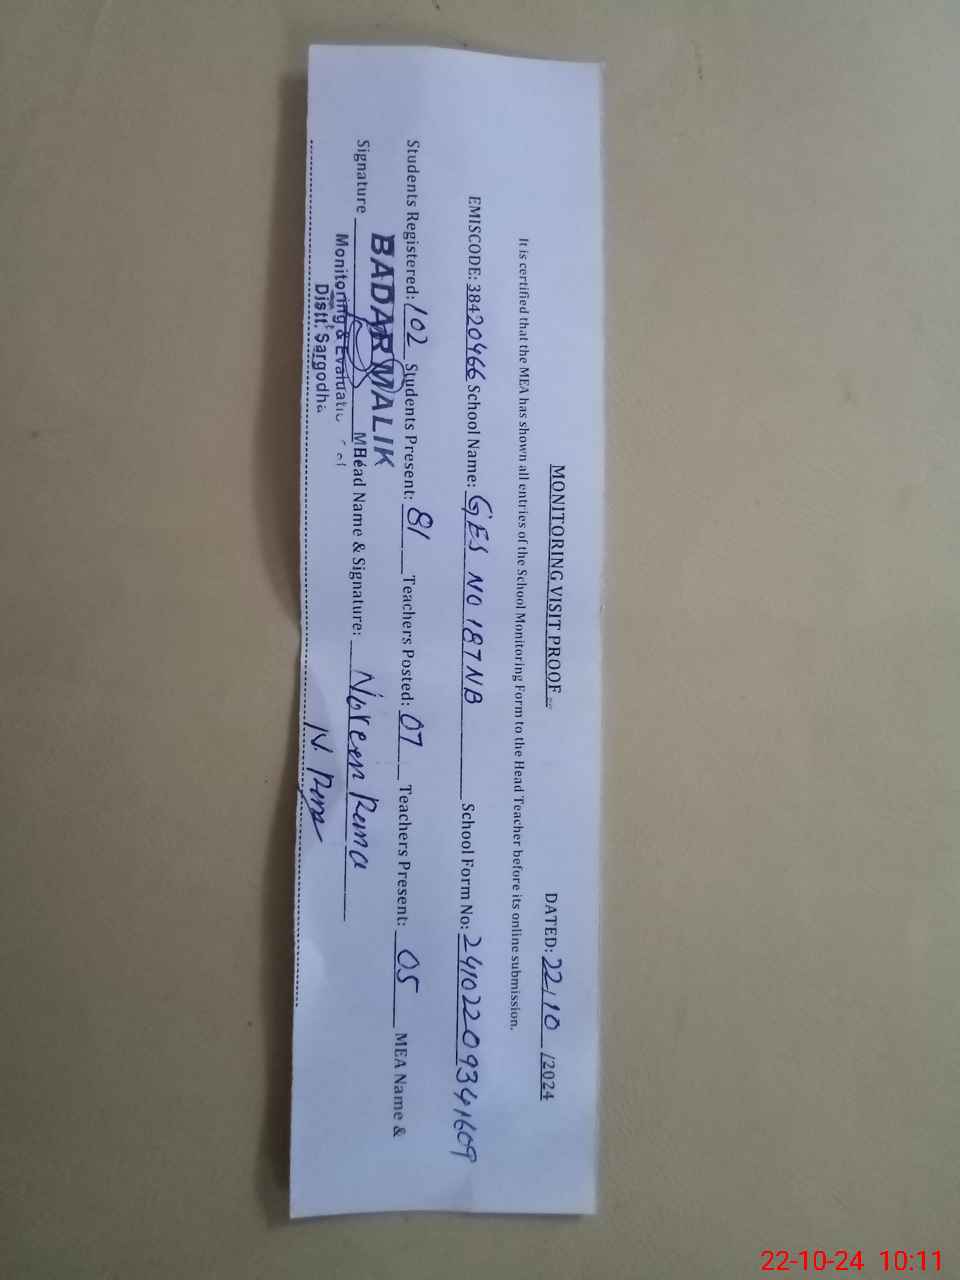 MONITORING VISIT PROOF DATED: 22/10/2024
It is certified that the MEA has shown all entries of the School Monitoring Form to the Head Teacher before its online submission.
EMISCODE: 38420466 School Name: GES NO 187 NB School Form No: 24102209341609
Students Registered: 102 Students Present: 81 Teachers Posted: 07 Teachers Present: 05 MEA Name &
Signature Head Name & Signature: Noreen
BADAR MALIK
Monitoring & Evaluatio
Distt. Sargodha
22-10-24 10:11